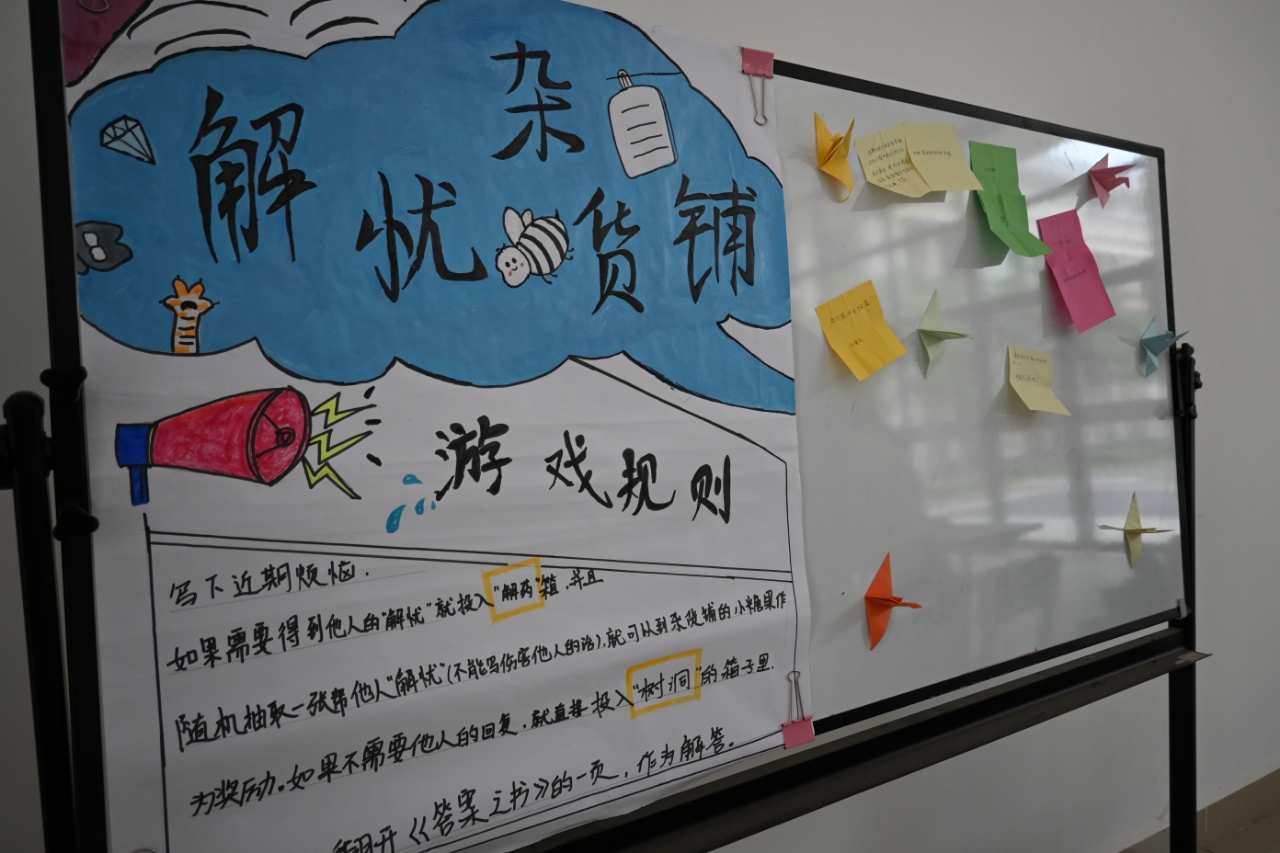 解忧杂货铺
游戏规则
写下近期烦恼.
如果需要得到他人的"解忧"就投入"解药"箱.并且
随机抽取一张帮他人"解忧"(不能写伤害他人的话),就可以到杂货铺的小糖果作
为奖励。如果不需要他人的回复,就直接投入"树洞"的箱子里.
翻开《答案之书》的一页,作为解答。